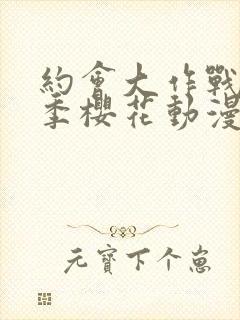 約會大作戰
季櫻花動漫
元寶下个崽